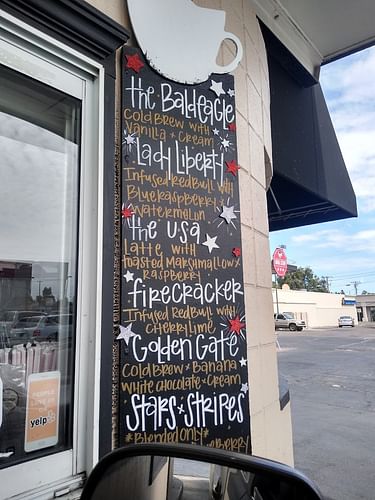 the Baldeagle
Cold Brew with
Vanilla + Cream
Lady Liberty
Infused RedBull with
Blue Raspberry +
Watermelon
the USA
Latte with
Toasted Marshmallow +
Raspberry
firecracker
Infused RedBull with
Cherry Lime
Golden Gate
Cold Brew + Banana
White Chocolate + Cream
Stars + Stripes
*Blended Only*
PEOPLE
yelp